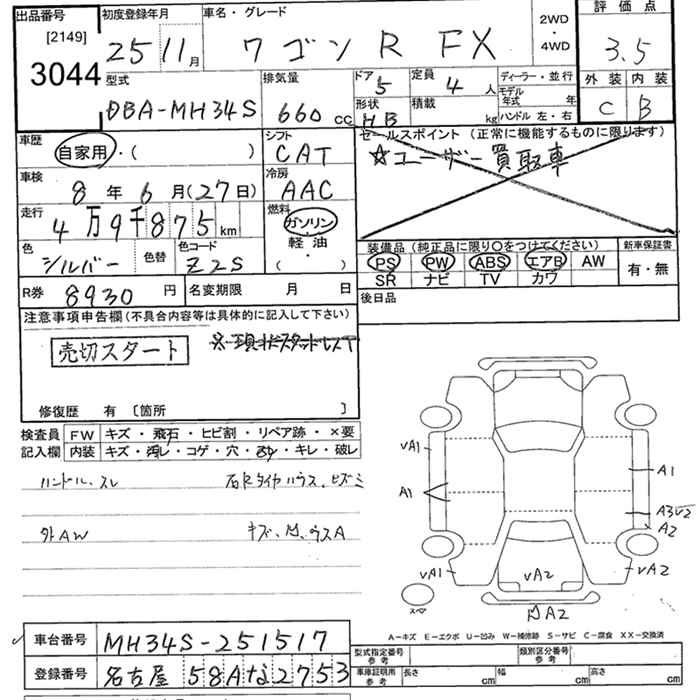 出品番号 [2149] 3044
初度登録年月 25 11月
車名・グレード ワゴンR FX
2WD・4WD
評価点 3.5
外装 内装
C B
型式 DBA-MH34S
排気量 660cc
ドア 5
形状 HB
定員 4人
積載 kg
ディーラー・並行
モデル年式 年
ハンドル 左・右
車歴 自家用・( )
シフト CAT
セールスポイント (正常に機能するものに限ります)
☆ユーザー買取車
車検 8年6月(27日)
冷房 AAC
走行 4万9千875km
燃料 ガソリン・軽油 ( )
色 シルバー 色替
色コード Z2S
装備品(純正品に限り○をつけてください)
新車保証書
PS PW ABS エアB AW
SR ナビ TV カワ
有・無
R券 8930円
名変期限 月 日
後日品
注意事項申告欄(不具合内容等は具体的に記入して下さい)
売切スタート
修復歴 有 〔箇所 〕
検査員記入欄
FW キズ・飛石・ヒビ割・リペア跡・×要
内装 キズ・汚レ・コゲ・穴・スレ・キレ・破レ
ハンドル、スレ
外AW キズ、
VA1
A1
A1
A3U2
A2
VA1
VA2
VA2
A2
スペ
A－キズ E－エクボ U－凹み W－補修跡 S－サビ C－腐食 XX－交換済
車台番号 MH34S-251517
登録番号 名古屋 58A な 2753
型式指定番号 参考
類別区分番号 参考
車庫証明用 参考 長さ cm 幅 cm 高さ cm